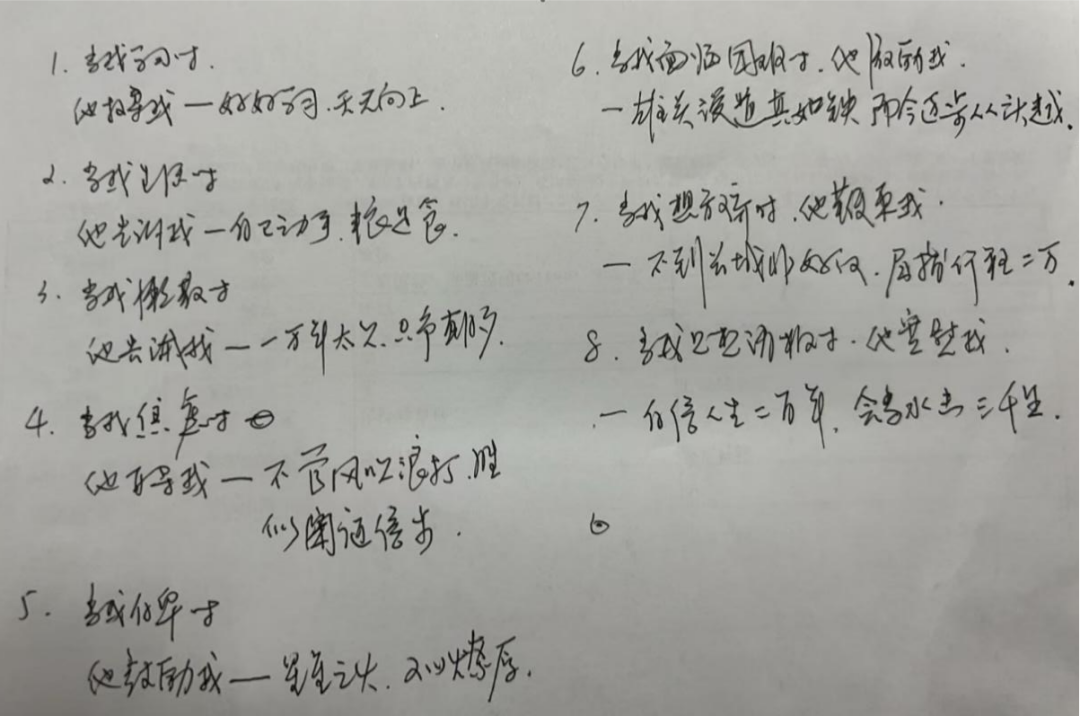 1. 当我学习时.
他指导我一好好学习.天天向上.
2. 当我生活时
他告诉我一自己动手.粮足食.
3. 当我懒散时
他告诫我一一万年太久.只争朝夕.
4. 当我焦虑时
他百导我一不管风吹浪打.胜
似闲庭信步.
5. 当我自卑时
他鼓励我一星星之火.可以燎原.
6. 当我面临困难时.他激励我.
一雄关漫道真如铁 而今迈步从头越.
7. 当我想放弃时.他鞭策我.
一不到长城非好汉.屈指行程二万.
8. 当我意消极时.他安慰我.
一自信人生二百年.会当水击三千里.